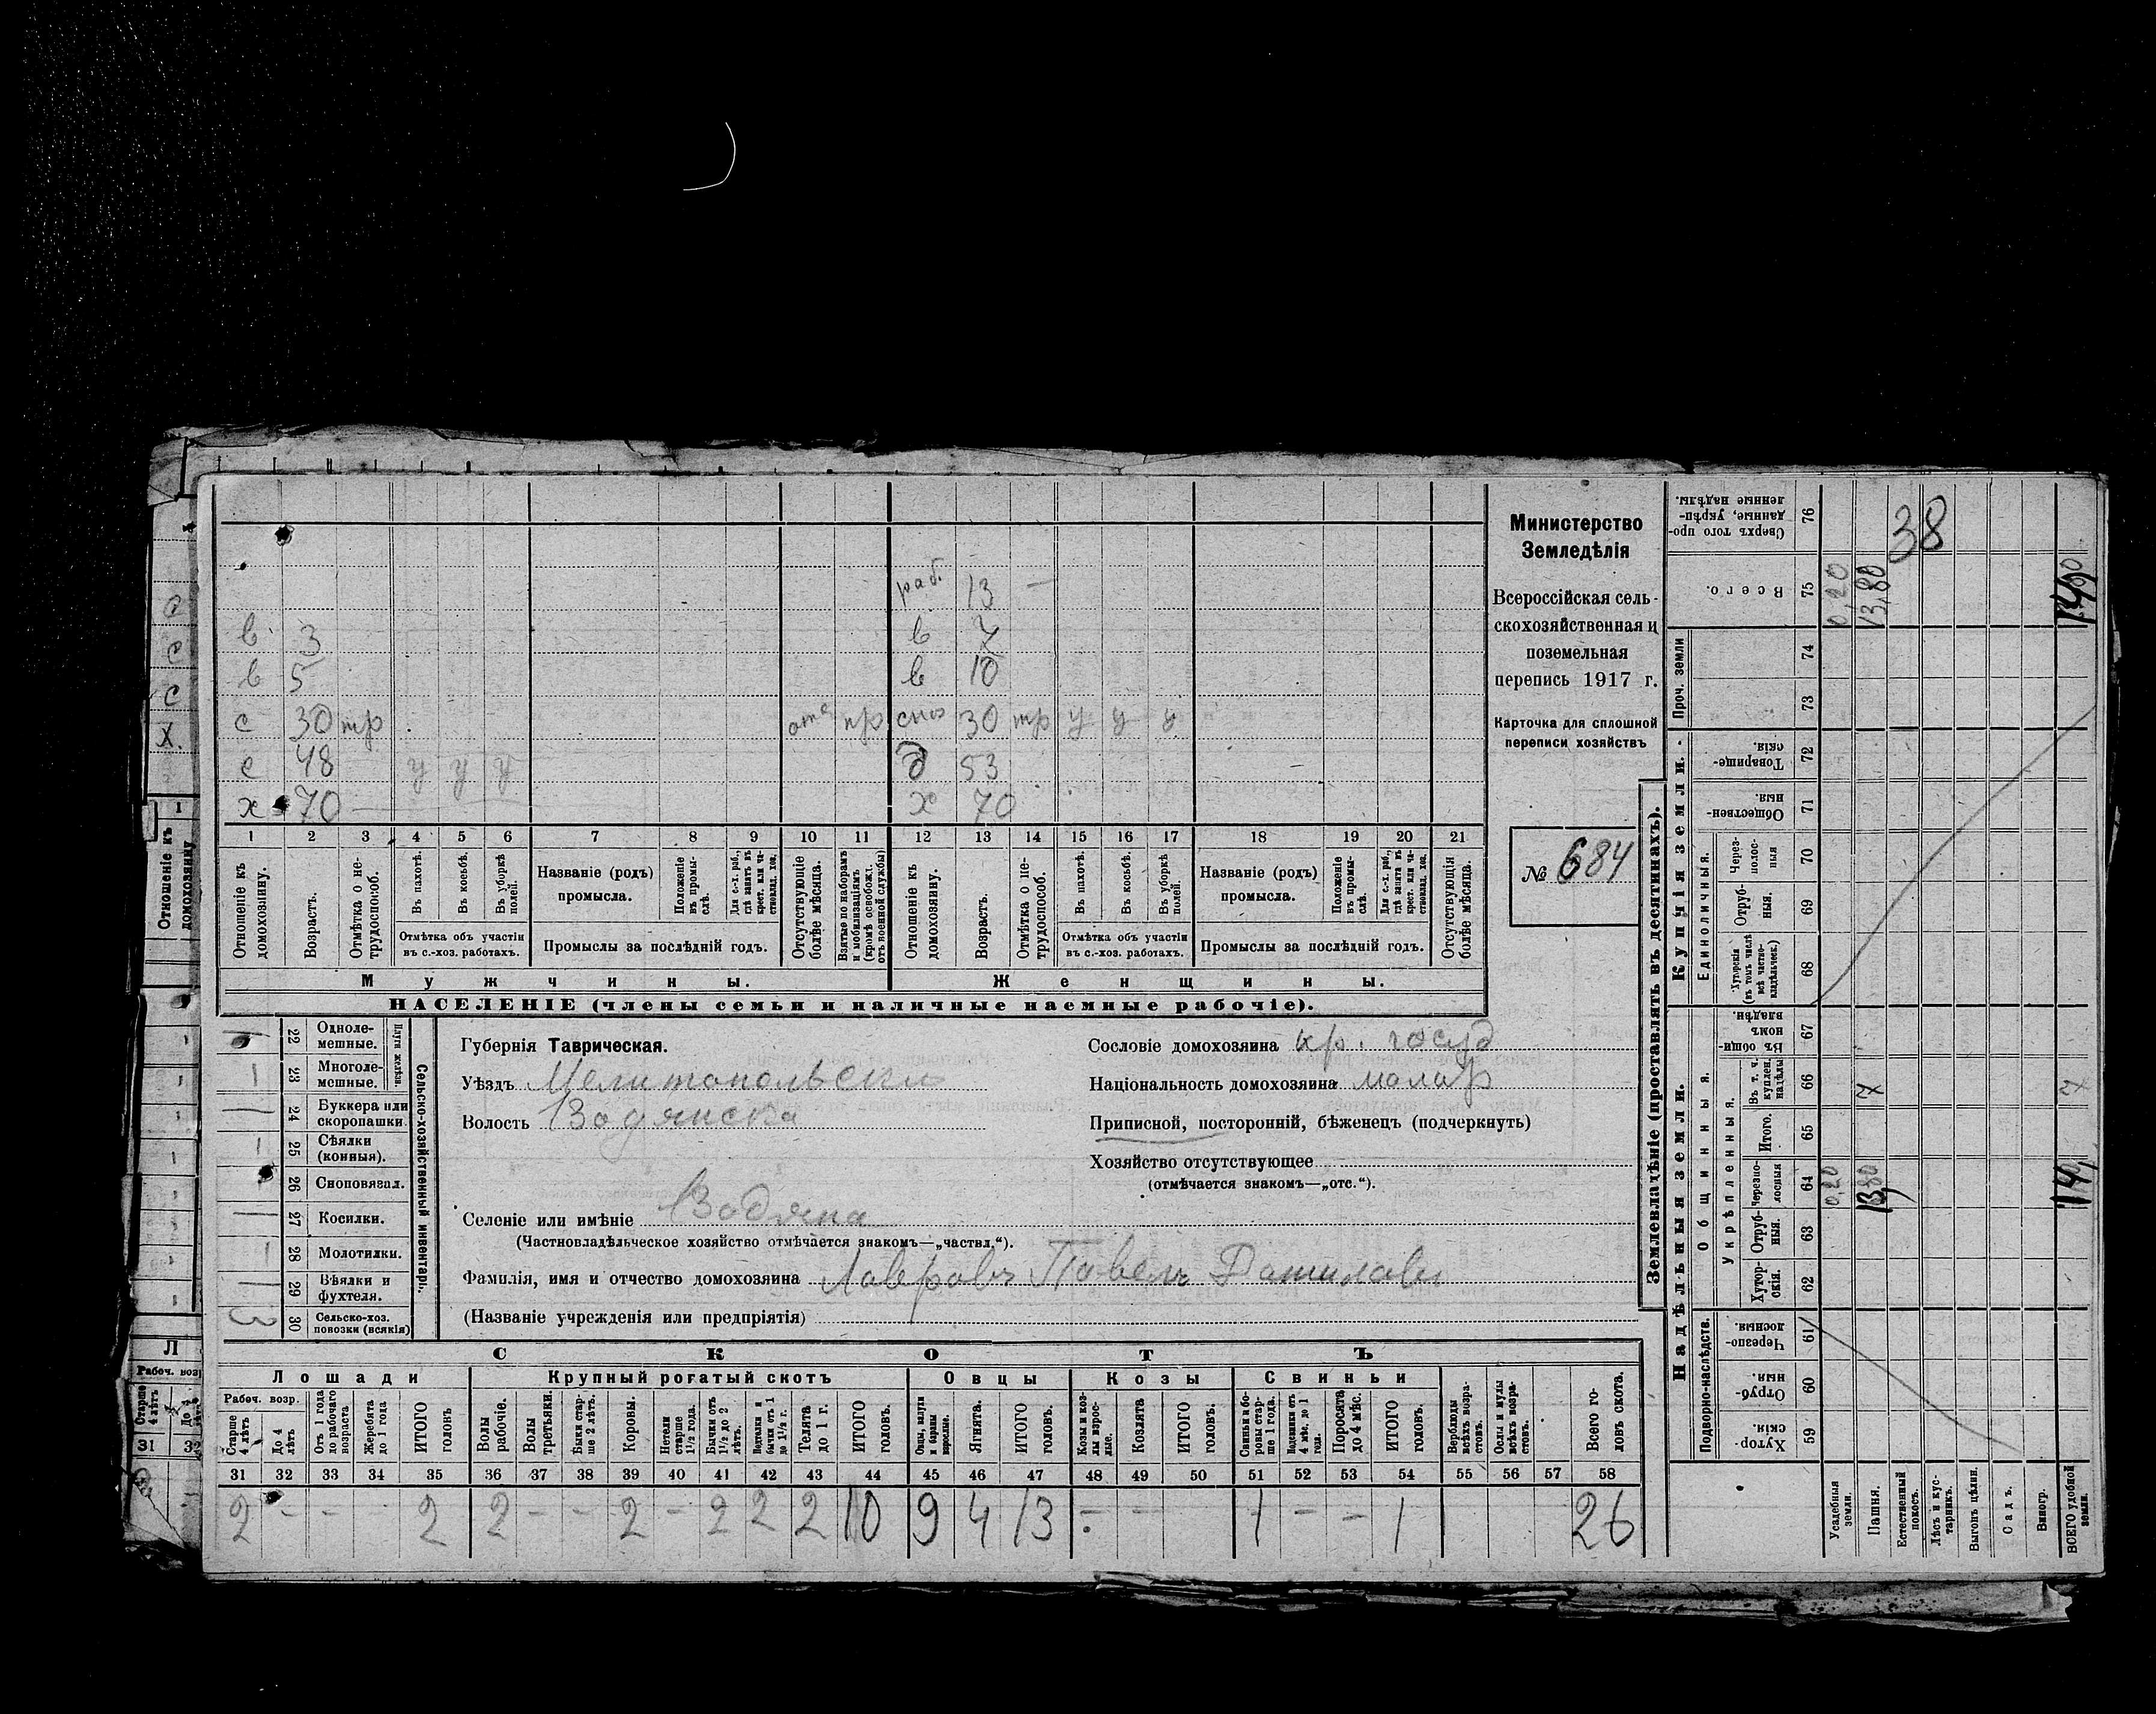 раб. 13 —
в 3 в 7
в 5 в 10
с 30 тр отс пр снох 30 тр у у у
с 48 у у у д 53
х 70 х 70
1 2 3 4 5 6 7 8 9 10 11 12 13 14 15 16 17 18 19 20 21
Отношеніе къ домохозяину.
Возрастъ.
Отмѣтка о не-трудоспособ.
Въ пахотѣ.
Въ косьбѣ.
Въ уборкѣ полей.
Отмѣтка объ участіи въ с.-хоз. работахъ.
Названіе (родъ) промысла.
Положеніе въ промы-слѣ.
Для с.-х. раб., гдѣ занятъ въ крест. или ча-стновлад. хоз.
Промыслы за послѣдній годъ.
Отсутствующіе болѣе мѣсяца.
Взятые по наборамъ и мобилизаціямъ (кромѣ освобожд. отъ военной службы)
Отношеніе къ домохозяину.
Возрастъ.
Отмѣтка о не-трудоспособ.
Въ пахотѣ.
Въ косьбѣ.
Въ уборкѣ полей.
Отмѣтка объ участіи въ с.-хоз. работахъ.
Названіе (родъ) промысла.
Положеніе въ промы-слѣ.
Для с.-х. раб., гдѣ занята въ крест. или ча-стновлад. хоз.
Промыслы за послѣдній годъ.
Отсутствующія болѣе мѣсяца.
Мужчины. Женщины.
НАСЕЛЕНІЕ (члены семьи и наличные наемные рабочіе).
Министерство
Земледѣлія
Всероссійская сель-
скохозяйственная и
поземельная
перепись 1917 г.
Карточка для сплошной
переписи хозяйствъ
№ 684
Сельско-хозяйственный инвентарь.
Плуги желѣзн.
22 Одноле-мешные.
23 Многоле-мешные.
24 Буккера или скоропашки
25 Сѣялки (конныя).
26 Сноповязал.
27 Косилки.
28 Молотилки.
29 Вѣялки и фухтеля.
3 30 Сельско-хоз. повозки (всякія)
Губернія Таврическая.
Уѣздъ Мелитопольскій
Волость Водянска
Селеніе или имѣніе Водяна
(Частновладѣльческое хозяйство отмѣчается знакомъ—„частвл.“).
Фамилія, имя и отчество домохозяина Лавровъ Павелъ Данилови
(Названіе учрежденія или предпріятія)
Сословіе домохозяина кр. госуд
Національность домохозяина малор
Приписной, посторонній, бѣженецъ (подчеркнуть)
Хозяйство отсутствующее
(отмѣчается знакомъ—„отс.“).
СКОТЪ
Лошади Крупный рогатый скотъ Овцы Козы Свиньи
Рабоч. возр.
Старше 4 лѣтъ
До 4 лѣтъ
Отъ 1 года до рабочаго возраста
Жеребята до 1 года
ИТОГО головъ
Волы рабочіе.
Волы третьяки.
Быки стар-ше 2 лѣтъ.
Коровы.
Нетели старше 1½ года.
Бычки отъ 1½ до 2 лѣтъ.
Телята до 1 г.
ИТОГО головъ.
Ягнята.
ИТОГО головъ.
Козы и коз-лы взрос-лые.
Козлята
ИТОГО головъ.
Свиньи и бо-ровы стар-ше 1 года.
Поросята до 4 мѣс.
ИТОГО головъ.
Верблюды всѣхъ возра-стовъ.
Ослы и мулы всѣхъ возра-стовъ.
Всего го-ловъ скота.
31 32 33 34 35 36 37 38 39 40 41 42 43 44 45 46 47 48 49 50 51 52 53 54 55 56 57 58
2 - - - 2 2 - - 2 - 2 2 2 10 9 4 13 - - 1 - - 1 26
Землевладѣніе (проставлять въ десятинахъ).
Надѣльныя земли. Купчія земли.
Подворно-наслѣдств.
Общинныя.
Укрѣпленныя.
Единоличныя.
Проч. земли
Сверхъ того про-данные, укрѣп-ленные надѣлы. 76
Всего. 75
74
73
Товарище-скія. 72
Обществен-ныя. 71
Через-полос-ныя 70
Отруб-ныя. 69
Хуторскія (въ томъ числѣ всѣ частно-владѣльческ.) 68
Въ общин-номъ владѣн. 67
Въ т. ч. куплен. надѣлы 66
Итого. 65
Черезпо-лосныя 64
Отруб-ныя. 63
Хутор-скія. 62
Черезпо-лосныя. 61
Отруб-ныя. 60
Хутор-скія. 59
Усадебныя земли.
Пашня.
Естественный покосъ.
Лѣсъ и кус-тарникъ.
Выгонъ цѣлин.
Садъ.
Виногр.
ВСЕГО удобной земли.
38
0,20
13,80
0,20
13,80
Отношеніе къ домохозяину
Рабоч. воз
Старше 4 лѣтъ
31 32